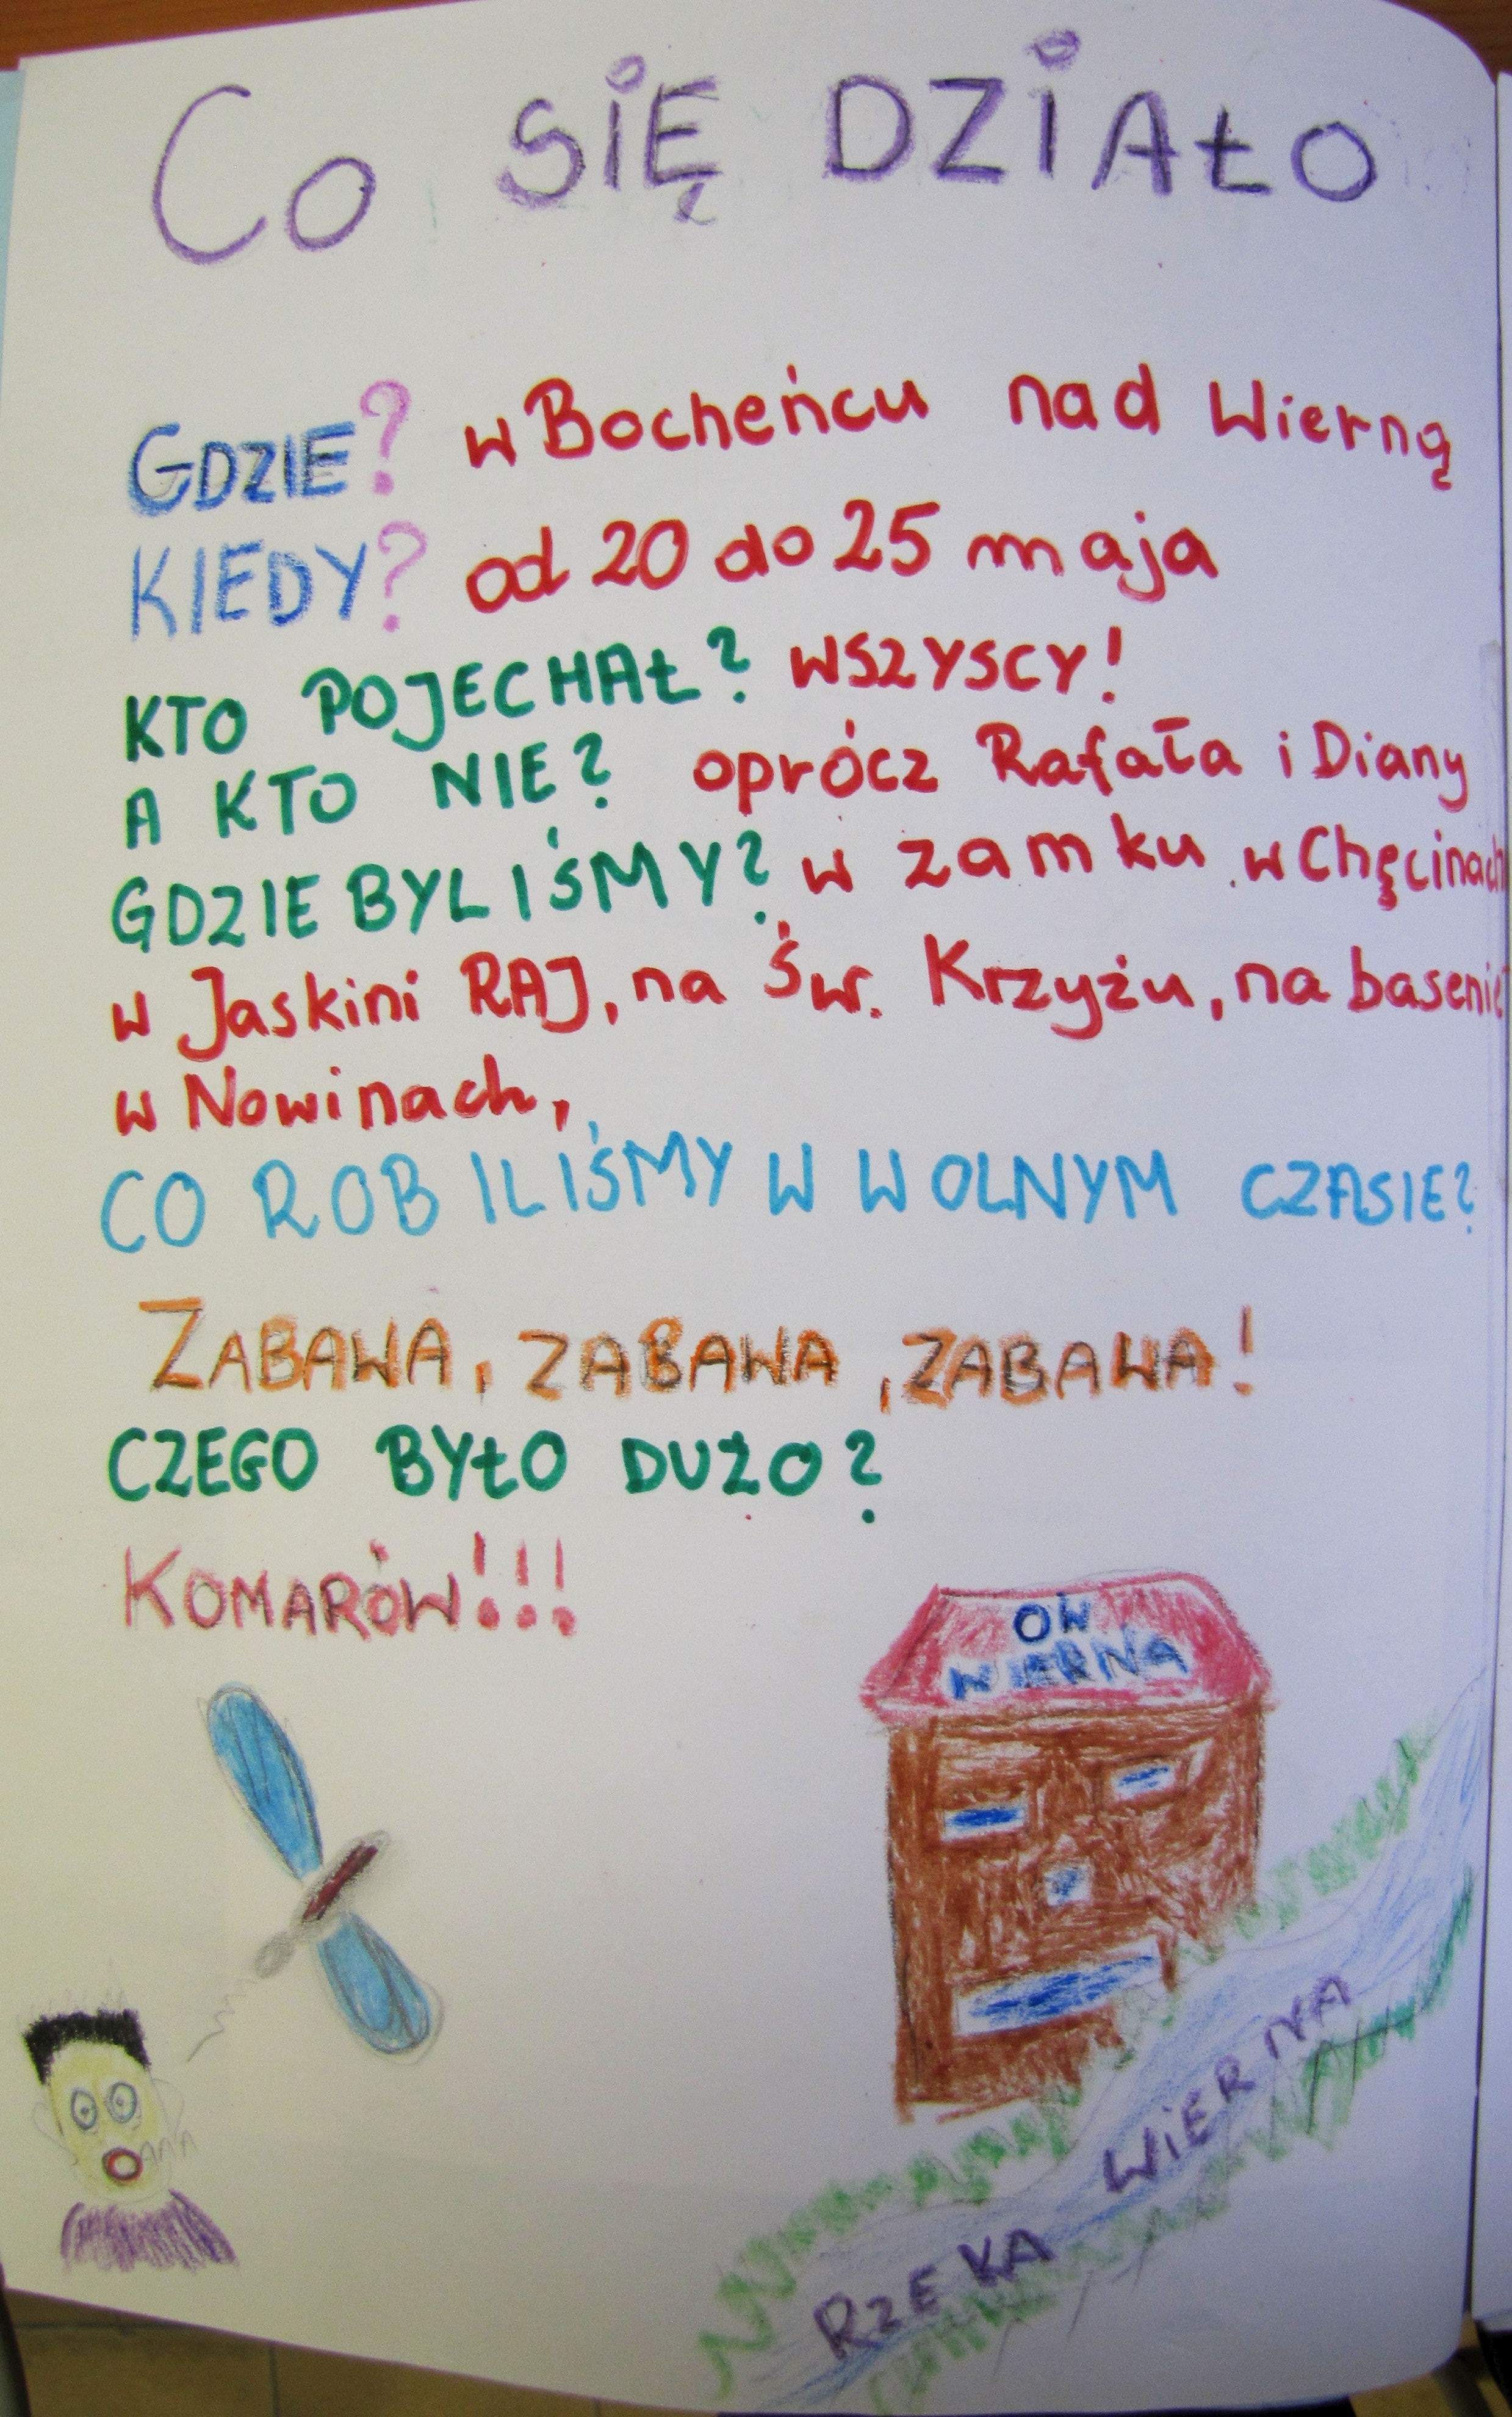 Co SIĘ DZIAŁO
GDZIE? w Bocheńcu nad Wierną
KIEDY? od 20 do 25 maja
KTO POJECHAŁ? WSZYSCY!
A KTO NIE? oprócz Rafała i Diany
GDZIE BYLIŚMY? w zamku w Chęcinach
w Jaskini RAJ, na Św. Krzyżu, na basenie
w Nowinach,
CO ROBILIŚMY W WOLNYM CZASIE?
ZABAWA, ZABAWA, ZABAWA!
CZEGO BYŁO DUŻO?
KOMARÓW!!!
OW
WIERNA
AAA
RZEKA WIERNA